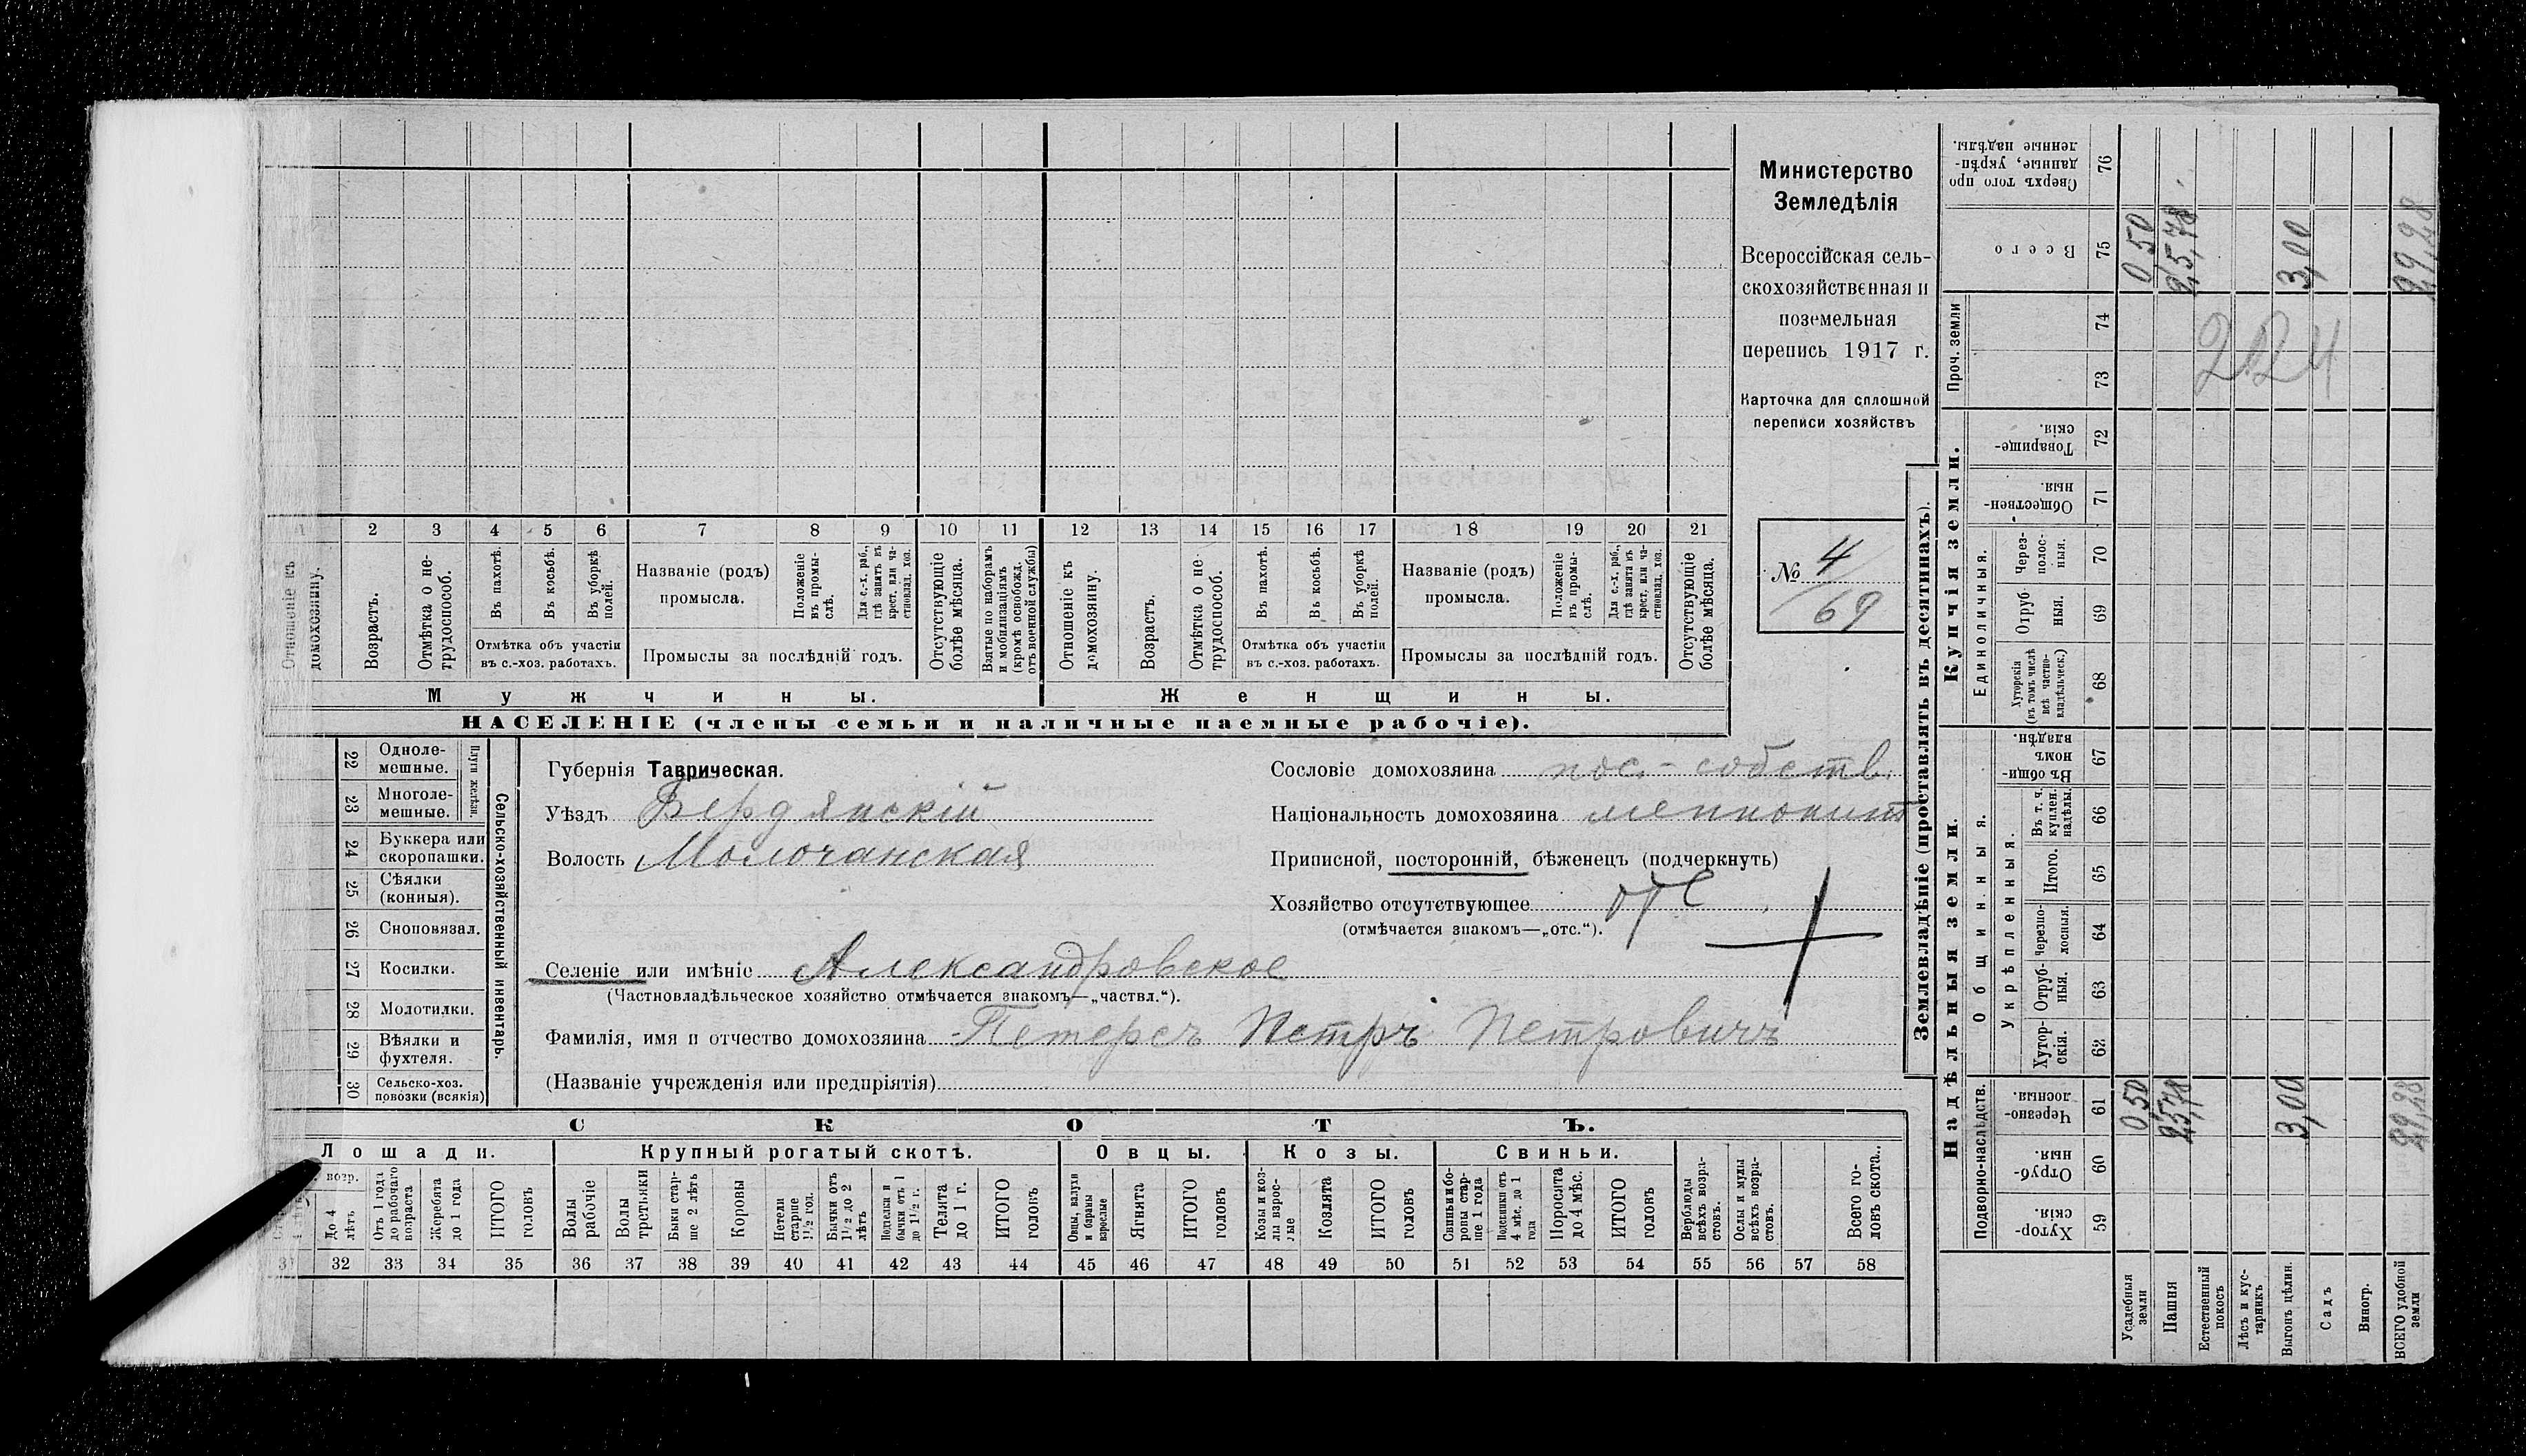 Министерство
Земледѣлія
Всероссійская сель-
скохозяйственная и
поземельная
перепись 1917 г.
Карточка для сплошной
переписи хозяйствъ
№ 4
69
1 2 3 4 5 6 7 8 9 10 11 12 13 14 15 16 17 18 19 20 21
Отношеніе къ домохозяину.
Возрастъ.
Отмѣтка о не-
трудоспособ.
Въ пахотѣ.
Въ косьбѣ.
Въ уборкѣ полей.
Отмѣтка объ участіи
въ с.-хоз. работахъ.
Названіе (родъ)
промысла.
Положеніе въ промы-
слѣ.
Для с.-х. раб., гдѣ занятъ въ крест. или ча-
стновлад. хоз.
Промыслы за послѣдній годъ.
Отсутствующіе
болѣе мѣсяца.
Взятые по наборамъ
и мобилизаціямъ
(кромѣ освобожд.
отъ военной службы)
Отношеніе къ
домохозяину.
Возрастъ.
Отмѣтка о не-
трудоспособ.
Въ пахотѣ.
Въ косьбѣ.
Въ уборкѣ полей.
Отмѣтка объ участіи
въ с.-хоз. работахъ.
Названіе (родъ)
промысла.
Положеніе въ промы-
слѣ.
Для с.-х. раб., гдѣ занята въ крест. или ча-
стновлад. хоз.
Промыслы за послѣдній годъ.
Отсутствующіе
болѣе мѣсяца.
Мужчины.
Женщины.
НАСЕЛЕНІЕ (члены семьи и наличные наемные рабочіе).
22 Одноле-
мешные.
23 Многоле-
мешные.
Плуги желѣзн.
24 Буккера или
скоропашки.
25 Сѣялки
(конныя).
26 Сноповязал.
27 Косилки.
28 Молотилки.
29 Вѣялки и
фухтеля.
30 Сельско-хоз.
повозки (всякія)
Сельско-хозяйственный инвентарь.
Губернія Таврическая.
Уѣздъ Бердянскій
Волость Молочанская
Сословіе домохозяина пос.-собств.
Національность домохозяина меннонит
Приписной, посторонній, бѣженецъ (подчеркнуть)
Хозяйство отсутствующее отс
(отмѣчается знакомъ—„отс.“).
Селеніе или имѣніе Александровское
(Частновладѣльческое хозяйство отмѣчается знакомъ—„частвл.“).
Фамилія, имя и отчество домохозяина Петерсъ Петръ Петровичъ
(Названіе учрежденія или предпріятія)
СКОТЪ.
Лошади.
Крупный рогатый скотъ.
Овцы.
Козы.
Свиньи.
возр.
До 4 лѣтъ
Отъ 1 года
до рабочаго
возраста
Жеребята
до 1 года
ИТОГО
головъ
Волы
рабочіе
Волы
третьяки
Быки стар-
ше 2 лѣтъ
Коровы
Нетели
старше
1½ год.
Бычки отъ
1½ до 2
лѣтъ
Подтелки и
бычки отъ 1
до 1½ г.
Телята
до 1 г.
ИТОГО
головъ
Овцы, валухи
и бараны
взрослые
Ягнята
ИТОГО
головъ
Козы и коз-
лы взрос-
лые
Козлята
ИТОГО
головъ
Свиньи и бо-
ровы стар-
ше 1 года
Подсвинки отъ
4 мѣс. до 1
года
Поросята
до 4 мѣс.
ИТОГО
головъ
Верблюды
всѣхъ возра-
стовъ.
Ослы и мулы
всѣхъ возра-
стовъ.
Всего го-
ловъ скота.
31 32 33 34 35 36 37 38 39 40 41 42 43 44 45 46 47 48 49 50 51 52 53 54 55 56 57 58
Землевладѣніе (проставлять въ десятинахъ).
Надѣльныя земли.
Купчія земли.
Проч. земли
Подворно-наслѣдств.
Общинныя.
Укрѣпленныя.
Единоличныя.
Сверхъ того про
данные, укрѣп-
ленные надѣлы.
76
Всего
75
0,50
25,78
3,00
29,28
74
73
224
Товарище-
скія.
72
Обществен-
ныя.
71
Через-
полос-
ныя.
70
Отруб-
ныя.
69
Хуторскія
(въ томъ числѣ
всѣ частно-
владѣльческ.)
68
Въ общи-
номъ
владѣн.
67
Въ т. ч.
куплен.
надѣлы.
66
Итого.
65
Черезпо-
лосныя.
64
Отруб-
ныя.
63
Хутор-
скія.
62
Черезпо-
лосныя.
61
0,50
25,78
3,00
29,28
Отруб-
ныя.
60
Хутор-
скія.
59
Усадебныя
земли
Пашня
Естественный
покосъ
Лѣсъ и кус-
тарникъ
Выгонъ цѣлин.
Садъ
Виногр.
ВСЕГО удобной
земли